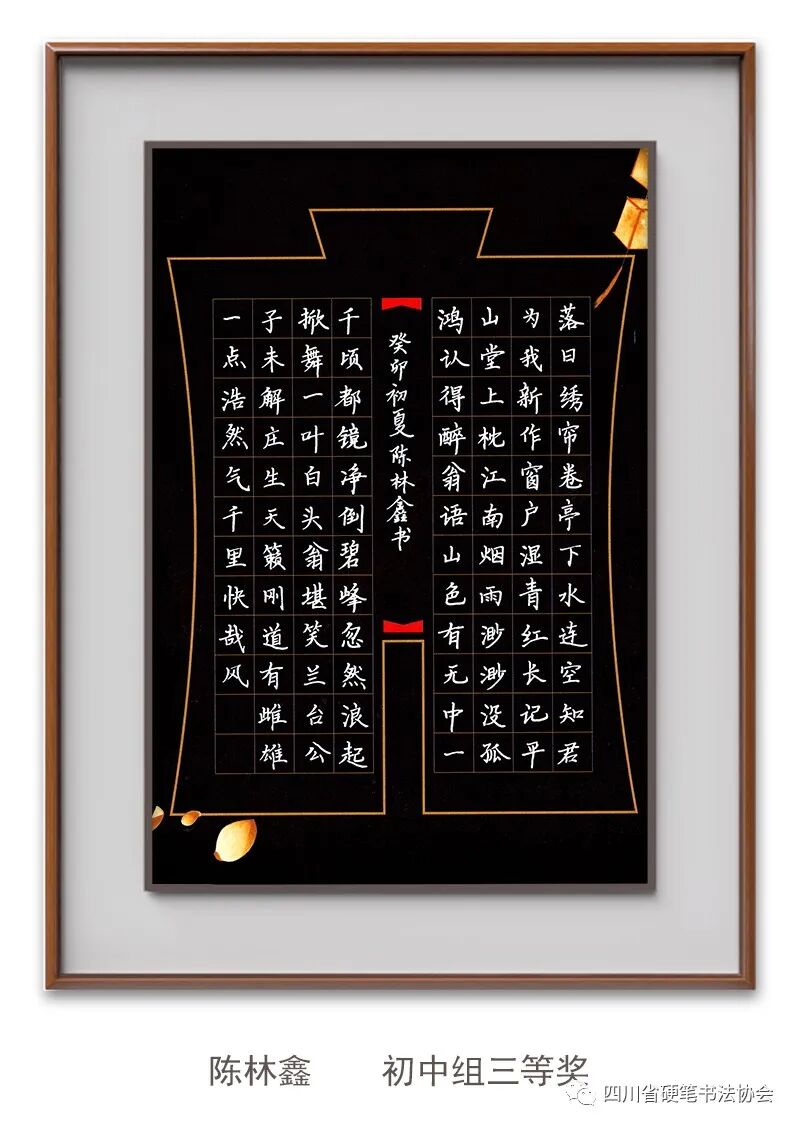 落日绣帘卷亭下水连空知君
为我新作窗户湿青红长记平
山堂上枕江南烟雨渺渺没孤
鸿认得醉翁语山色有无中一
千顷都镜净倒碧峰忽然浪起
掀舞一叶白头翁堪笑兰台公
子未解庄生天籁刚道有雌雄
一点浩然气千里快哉风
癸卯初夏陈林鑫书
陈林鑫 初中组三等奖
四川省硬笔书法协会